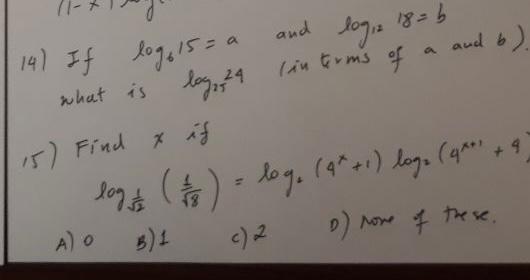 14) If log₆ 15 = a and log₁₂ 18 = b
what is log₂₅ 24 (in terms of a and b).
15) Find x if
log_{1/√2} (1/√8) = log₂ (4ˣ + 1) log₂ (4ˣ⁺¹ + 4)
A) 0 B) 1 C) 2 D) none of these.